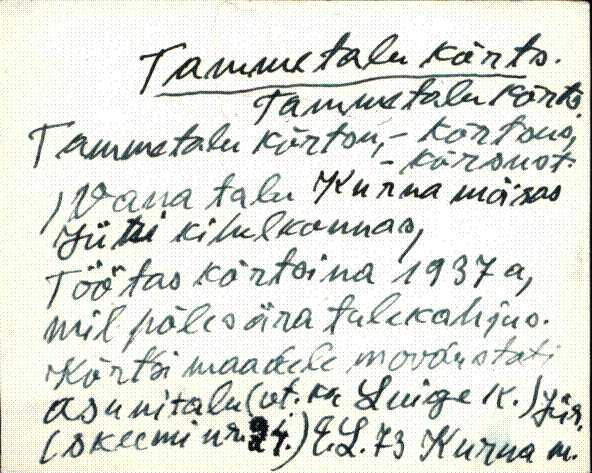 Tammetalu kõrts.
Tammetalu kõrts,
Tammetalu kõrtsu, – kõrtsus,
– kõrsust.
, Vana talu Kurna mõisas
Jüri kihelkonnas,
Töötas kõrtsina 1937 a,
mil põles ära tulekahjus.
Kõrtsi maadele moodustati
asunitalu (vt. ka Luige k.) Jür.
(skeemi nr. 24.) E.L. 73 Kurna m.